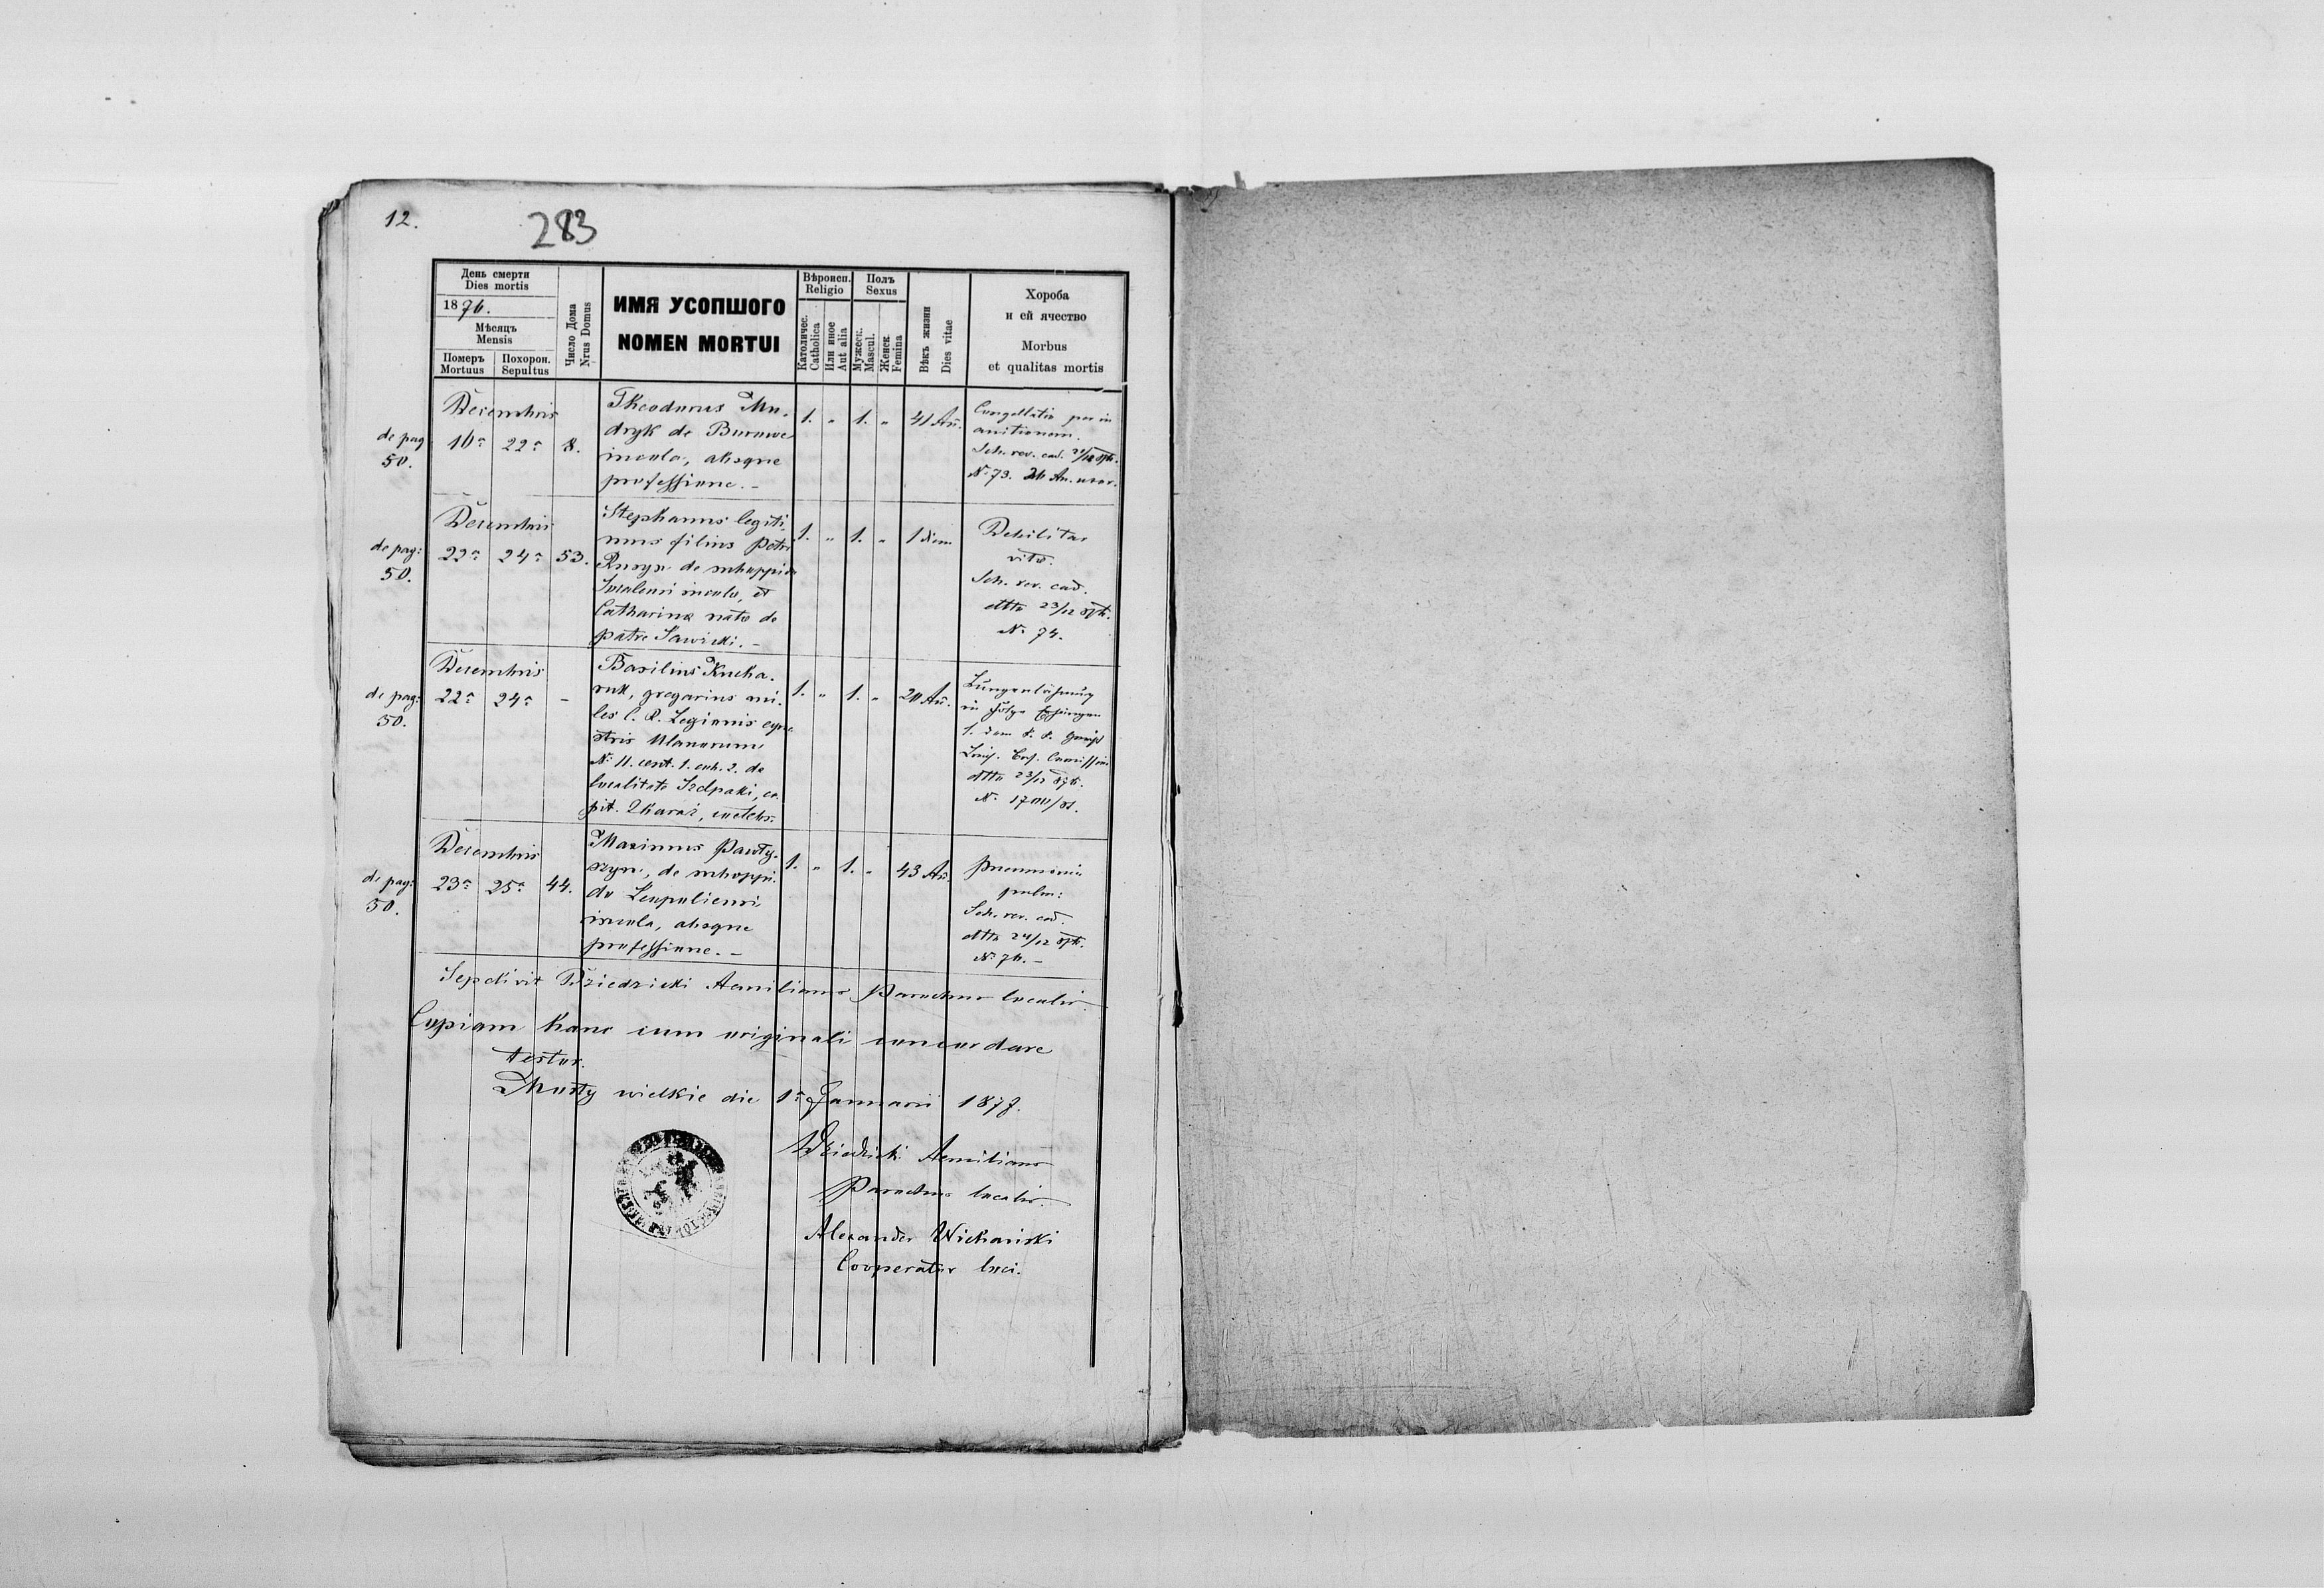 12.
283
День смерти
Dies mortis
1876.
Мѣсяцъ
Mensis
Померъ
Mortuus
Похорон.
Sepultus
Число Дома
Nrus Domus
ИМЯ УСОПШОГО
NOMEN MORTUI
Вѣроисп.
Religio
Католичес.
Catholica
Или иное
Aut alia
Полъ
Sexus
Мужеск.
Mascul.
Женск.
Femina
Вѣкъ жизни
Dies vitae
Хороба
и ей ячество
Morbus
et qualitas mortis
de pag
50.
Decembris
16a 22a 8.
Theodorus Mu-
dryk de
incola, absque
professione. –
1. „ 1. „ 41 An.
Congellatio per in
anitionem.
Sch. rev. cad.
No 73. 26 An. uxor.
de pag:
50.
Decembris
22a 24a 53.
Stephanus legiti-
mus filius Petri
Rusyn de suboppido
incola, et
Catharina nata de
patre Sawicki. –
1. „ 1. „ 1 diem
Debilitas
vitæ.
Sch. rev. cad.
dtto 23/12 876.
No 74.
de pag:
50.
Decembris
22a 24a –
Basilius Kucha-
ruk, gregarius mi-
les C. R. Legionis eque
stris Ulanorum
No 11. cent. 1. coh. 2. de
localitate Szelpaki, ca-
pit. Zbaraż, coelebs.
1. „ 1. „ 20 An.
Lungenlähmung
in Folge
dtto 23/12 876.
No
de pag:
50.
Decembris
23a 25a 44.
Maximus Pawły-
szyn, de suboppi-
do Leopoliensi
incola, absque
professione. –
1. „ 1. „ 43 An.
Pneumonia
pulm:
Sch. rev. cad.
dtto 24/12 876.
No 76. –
Sepelivit Dziedzicki Aemilianus Parochus localis.
Copiam hanc cum originali concordare
testor.
Mosty wielkie die 1a Januarii 1877.
Dziedzicki Aemilianus
Parochus localis.
Alexander
Cooperator loci.